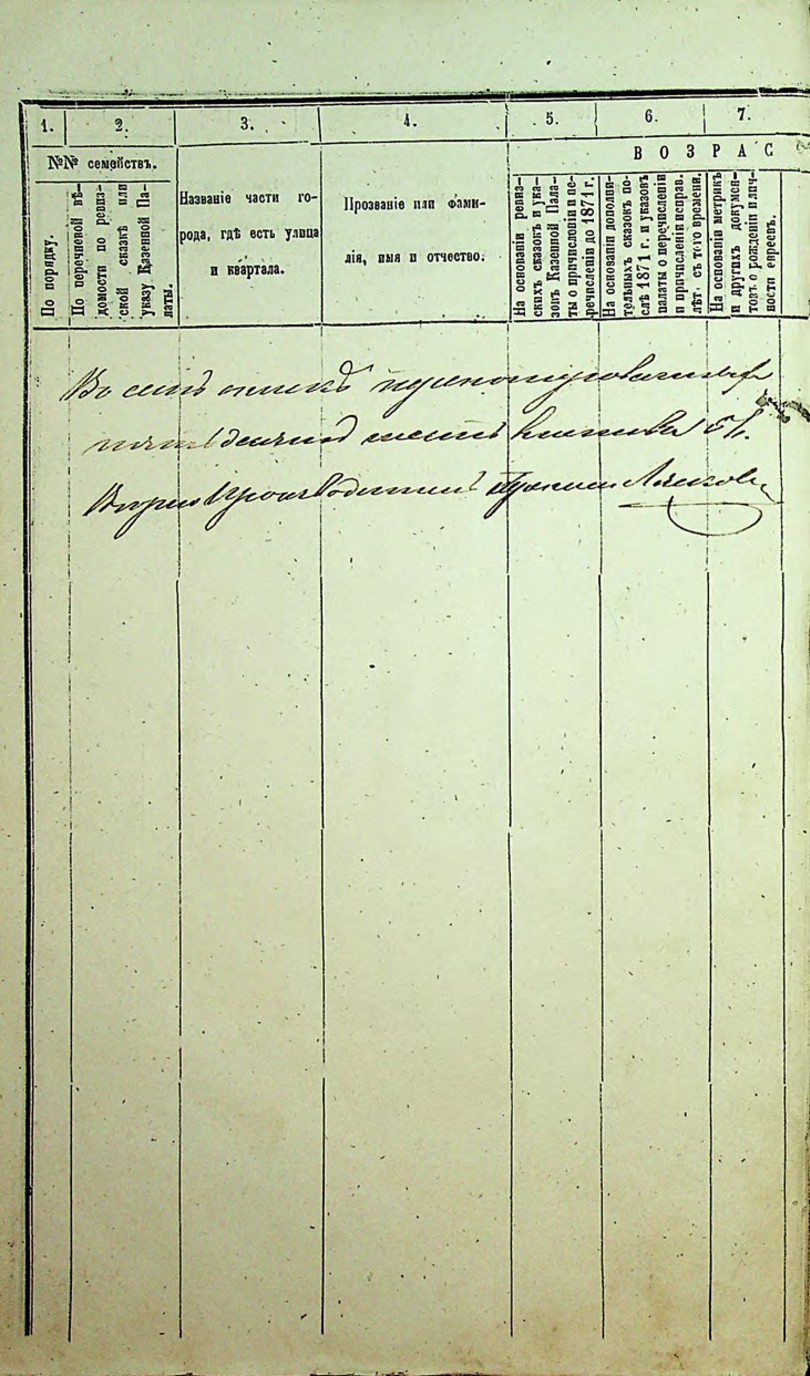 1. 2. 3. 4. 5. 6. 7.
№№ семействъ.
В О З Р А С
По порядку.
По перечневой вѣ-
домости по ревиз-
ской сказкѣ или
указу Казенной Па-
латы.
Названіе части го-
рода, гдѣ есть улица
и квартала.
Прозваніе или фами-
лія, имя и отчество.
На основаніи ревиз-
скихъ сказокъ и ука-
зовъ Казенной Пала-
ты о причисленіи и пе-
речисленіи до 1871 г.
На основаніи дополни-
тельныхъ сказокъ по-
слѣ 1871 г. и указовъ
палаты о перечисленіи
и причисленіи исправ.
лѣт. съ того времени.
На основаніи метрикъ
и другихъ докумен-
товъ о рожденіи и лич-
ности евреевъ.
Въ семъ спискѣ пронумерованныхъ
пятьдесятъ шесть
Вѣрно